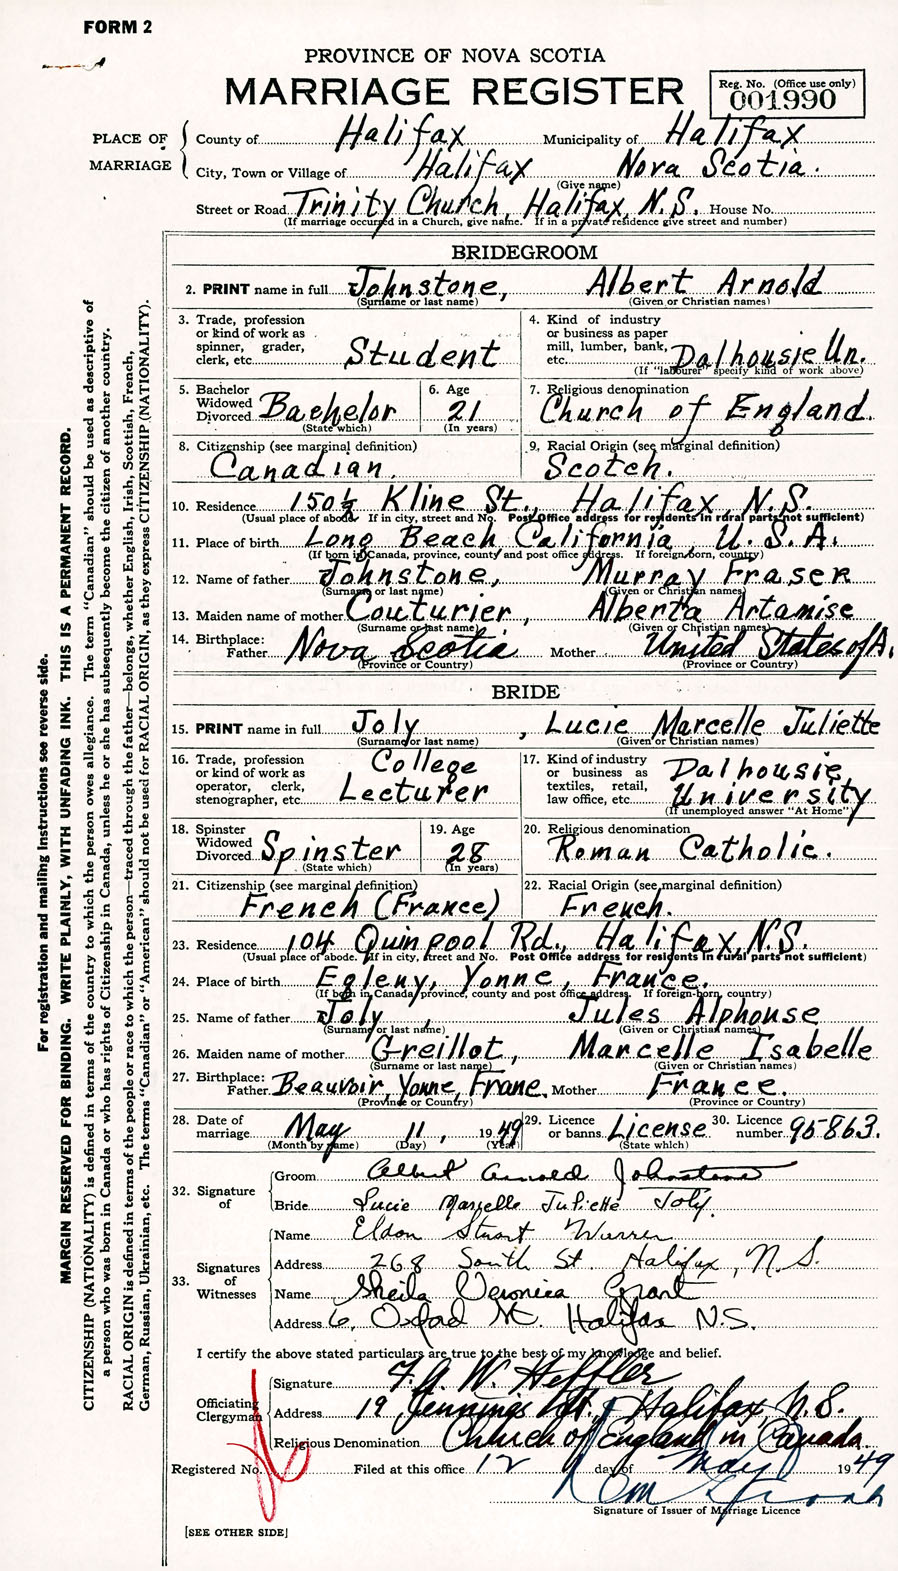 FORM 2
PROVINCE OF NOVA SCOTIA
MARRIAGE REGISTER
Reg. No. (Office use only)
001990
PLACE OF MARRIAGE
County of Halifax Municipality of Halifax
City, Town or Village of Halifax Nova Scotia.
(Give name)
Street or Road Trinity Church, Halifax, N.S. House No.
(If marriage occurred in a Church, give name. If in a private residence give street and number)
BRIDEGROOM
2. PRINT name in full Johnstone, Albert Arnold
(Surname or last name) (Given or Christian names)
3. Trade, profession or kind of work as spinner, grader, clerk, etc. Student
4. Kind of industry or business as paper mill, lumber, bank, etc. Dalhousie Un.
(If "labourer" specify kind of work above)
5. Bachelor Widowed Divorced Bachelor
(State which)
6. Age 21
(In years)
7. Religious denomination
Church of England.
8. Citizenship (see marginal definition)
Canadian.
9. Racial Origin (see marginal definition)
Scotch.
10. Residence 150½ Kline St., Halifax, N.S.
(Usual place of abode. If in city, street and No. Post Office address for residents in rural parts not sufficient)
11. Place of birth Long Beach California, U.S.A.
(If born in Canada, province, county and post office address. If foreign-born, country)
12. Name of father Johnstone, Murray Fraser
(Surname or last name) (Given or Christian names)
13. Maiden name of mother Couturier, Alberta Artamise
(Surname or last name) (Given or Christian names)
14. Birthplace:
Father Nova Scotia Mother United States of A.
(Province or Country) (Province or Country)
BRIDE
15. PRINT name in full Joly, Lucie Marcelle Juliette
(Surname or last name) (Given or Christian names)
16. Trade, profession or kind of work as operator, clerk, stenographer, etc. College Lecturer
17. Kind of industry or business as textiles, retail, law office, etc. Dalhousie University
(If unemployed answer "At Home")
18. Spinster Widowed Divorced Spinster
(State which)
19. Age 28
(In years)
20. Religious denomination
Roman Catholic.
21. Citizenship (see marginal definition)
French (France)
22. Racial Origin (see marginal definition)
French.
23. Residence 104 Quinpool Rd., Halifax, N.S.
(Usual place of abode. If in city, street and No. Post Office address for residents in rural parts not sufficient)
24. Place of birth Egleny, Yonne, France.
(If born in Canada, province, county and post office address. If foreign-born, country)
25. Name of father Joly, Jules Alphouse
(Surname or last name) (Given or Christian names)
26. Maiden name of mother Greillot, Marcelle Isabelle
(Surname or last name) (Given or Christian names)
27. Birthplace:
Father Beauvoir, Yonne, Frane. Mother France.
(Province or Country) (Province or Country)
28. Date of marriage May 11, 1949
(Month by name) (Day) (Year)
29. Licence or banns License
(State which)
30. Licence number 95863.
32. Signature of
Groom Albert Arnold Johnstone
Bride Lucie Marcelle Juliette Joly.
33. Signatures of Witnesses
Name Eldon Stuart Warren
Address 268 South St. Halifax, N.S.
Name Sheila Veronica Grant
Address 6, Oxford St. Halifax N.S.
I certify the above stated particulars are true to the best of my knowledge and belief.
Officiating Clergyman
Signature F. A. W. Heffler
Address 19 Jennings St., Halifax, N.S.
Religious Denomination Church of England in Canada.
Registered No. Filed at this office 12 day of May 1949
Signature of Issuer of Marriage Licence
[SEE OTHER SIDE]
For registration and mailing instructions see reverse side.
MARGIN RESERVED FOR BINDING. WRITE PLAINLY, WITH UNFADING INK. THIS IS A PERMANENT RECORD.
CITIZENSHIP (NATIONALITY) is defined in terms of the country to which the person owes allegiance. The term "Canadian" should be used as descriptive of
a person who was born in Canada or who has rights of Citizenship in Canada, unless he or she has subsequently become the citizen of another country.
RACIAL ORIGIN is defined in terms of the people or race to which the person—traced through the father—belongs, whether English, Irish, Scottish, French,
German, Russian, Ukrainian, etc. The terms "Canadian" or "American" should not be used for RACIAL ORIGIN, as they express CITIZENSHIP (NATIONALITY).